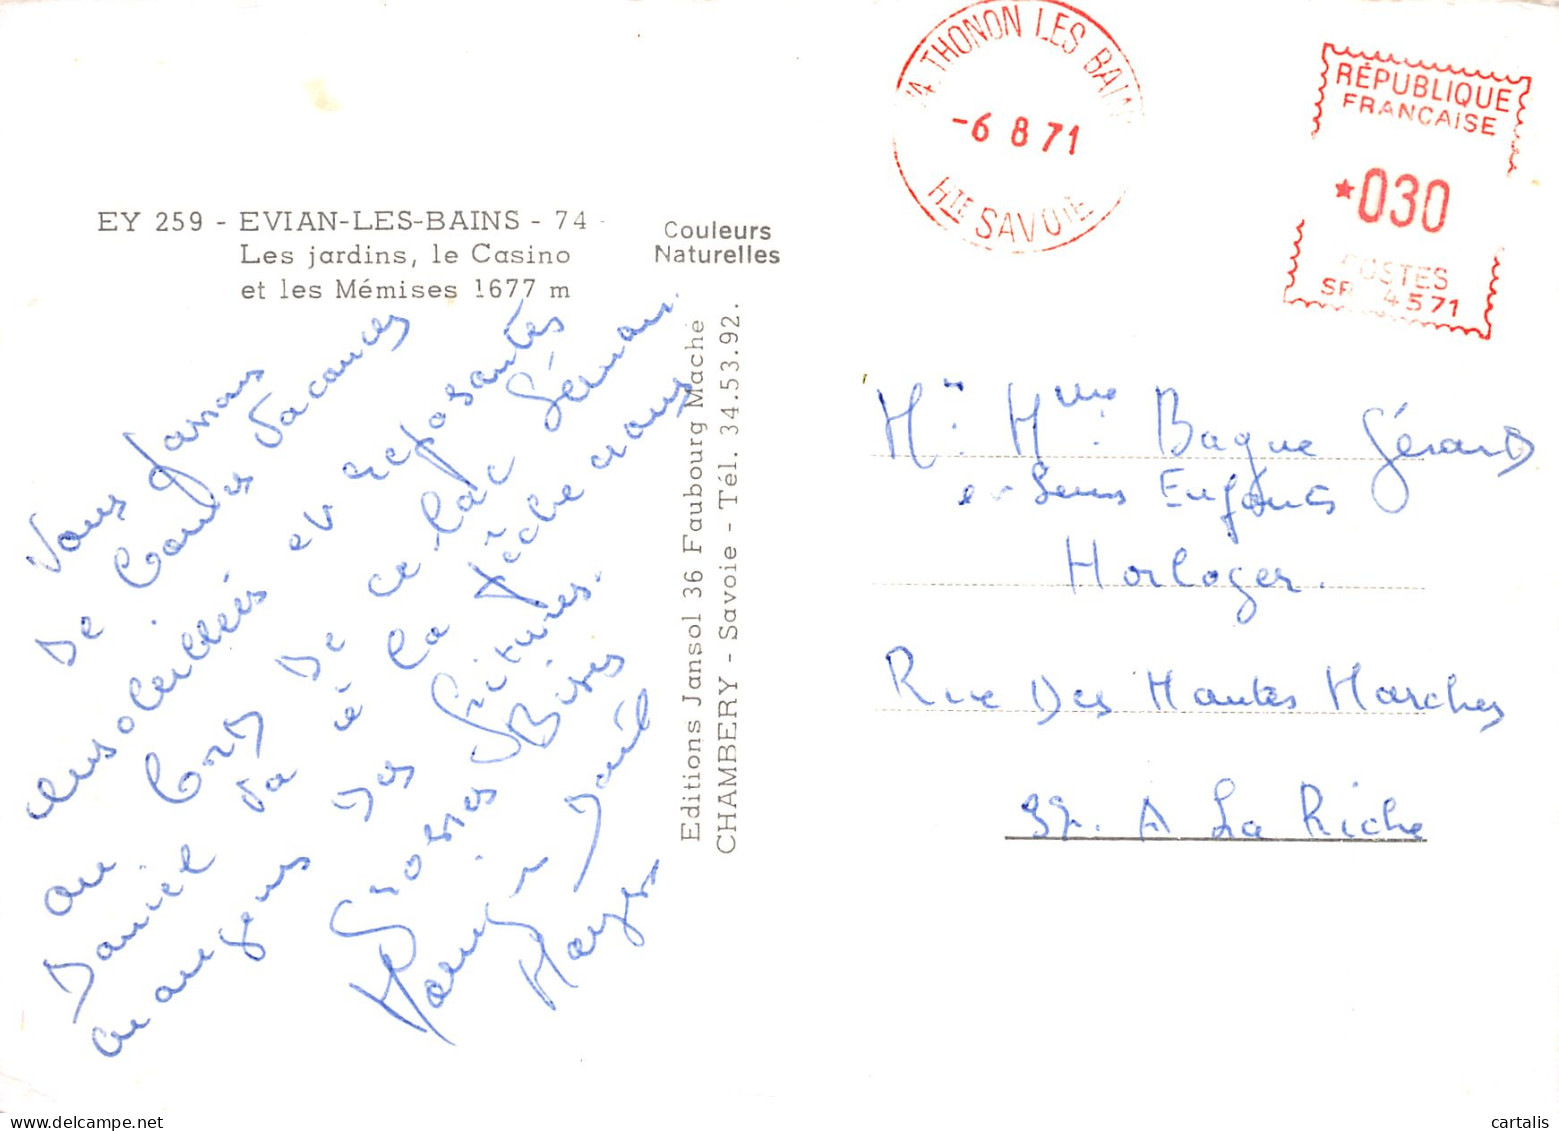 EY 259 - EVIAN-LES-BAINS - 74
Les jardins, le Casino
et les Mémises 1677 m
Couleurs
Naturelles
Editions Jansol 36 Faubourg Maché
CHAMBERY - Savoie - Tél. 34.53.92.
74 THONON LES BAINS
-6 8 71
HTE SAVOIE
RÉPUBLIQUE
FRANCAISE
*030
POSTES
4571
Nous passons
de bonnes vacances
ensoleillées et reposantes
au bord de ce lac Léman.
Daniel va à la pêche nous
mangeons des fritures.
Grosses Bises
Daniel
Mr. Mme Bague Gérard
et Leurs Enfants
Horloger.
Rue Des Hautes Marches
37. A La Riche
cartalis